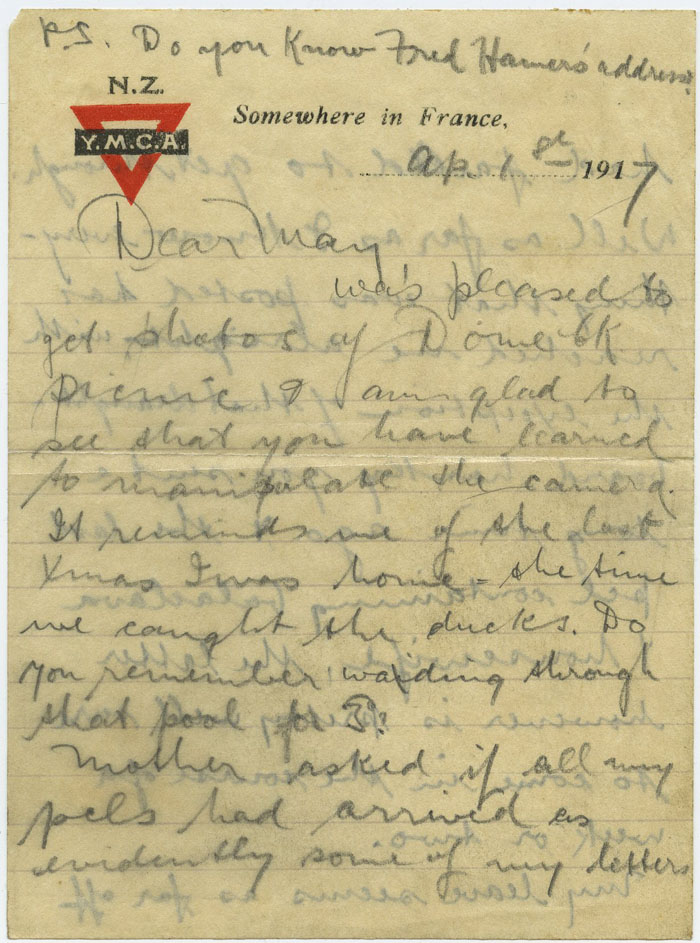 P.S. Do you Know Fred Hamers' address?
N.Z.
Y.M.C.A.
Somewhere in France,
Ap. 1st 1917
Dear May
was pleased to
get photos of Dome
picnic & am glad to
see that you have learned
to manipulate the camera.
It reminds me of the last
Xmas I was home - the time
we caught the ducks. Do
you remember waiding through
that pool for
Mother asked if all my
pcls had arrived as
evidently some of my letters